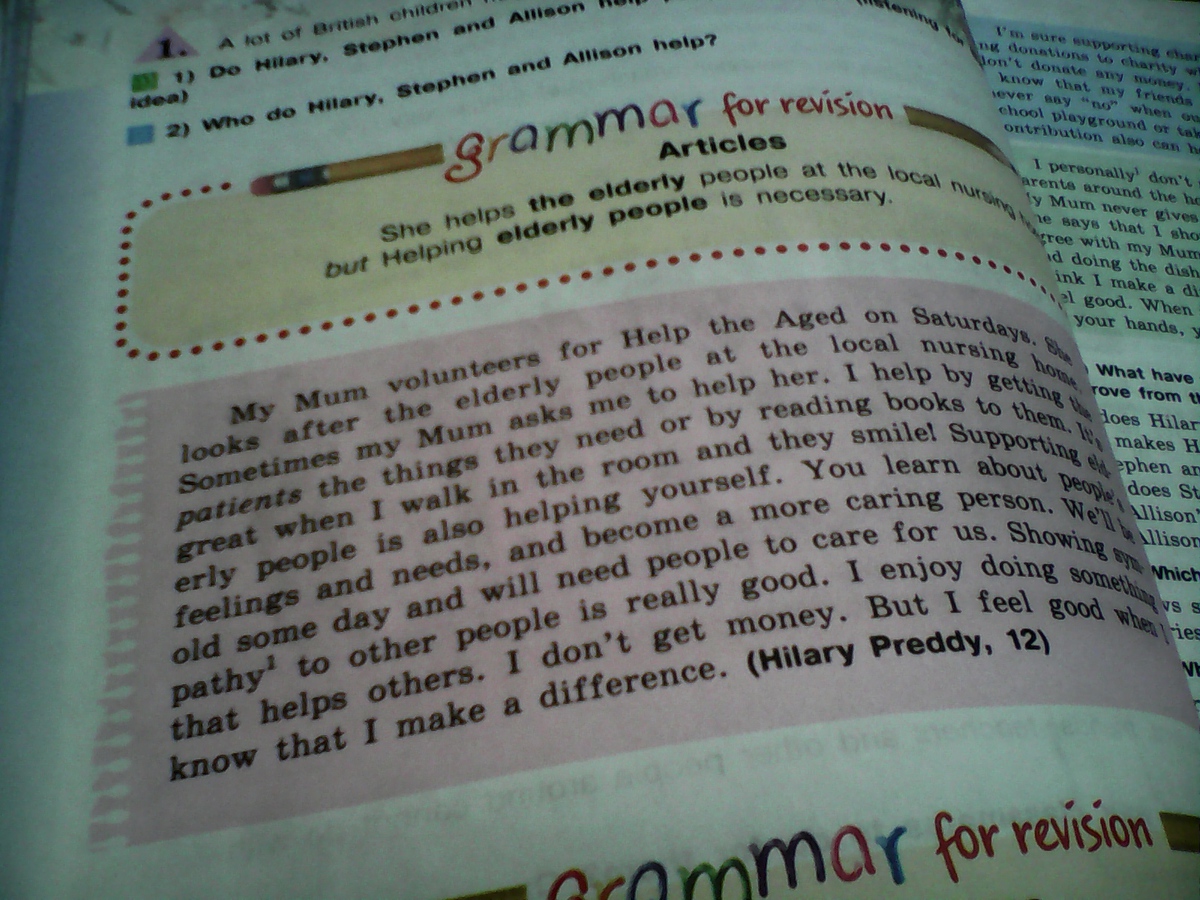 1. A lot of British children
1) Do Hilary, Stephen and Allison help
idea)
2) Who do Hilary, Stephen and Allison help?
grammar for revision
Articles
She helps the elderly people at the local nursing
but Helping elderly people is necessary.
My Mum volunteers for Help the Aged on Saturdays. She
looks after the elderly people at the local nursing home.
Sometimes my Mum asks me to help her. I help by getting the
patients the things they need or by reading books to them. It's
great when I walk in the room and they smile! Supporting eld-
erly people is also helping yourself. You learn about people's
feelings and needs, and become a more caring person. We'll be
old some day and will need people to care for us. Showing sym-
pathy¹ to other people is really good. I enjoy doing something
that helps others. I don't get money. But I feel good when I
know that I make a difference. (Hilary Preddy, 12)
grammar for revision
I'm sure supporting
donations to charity
don't donate any money.
know that my friends
never say "no" when
playground or
also can
I personally¹ don't
around the
Mum never gives
says that I
with my Mum
doing the
I make a
good. When
your hands,
What have
from
does
makes
does
Which